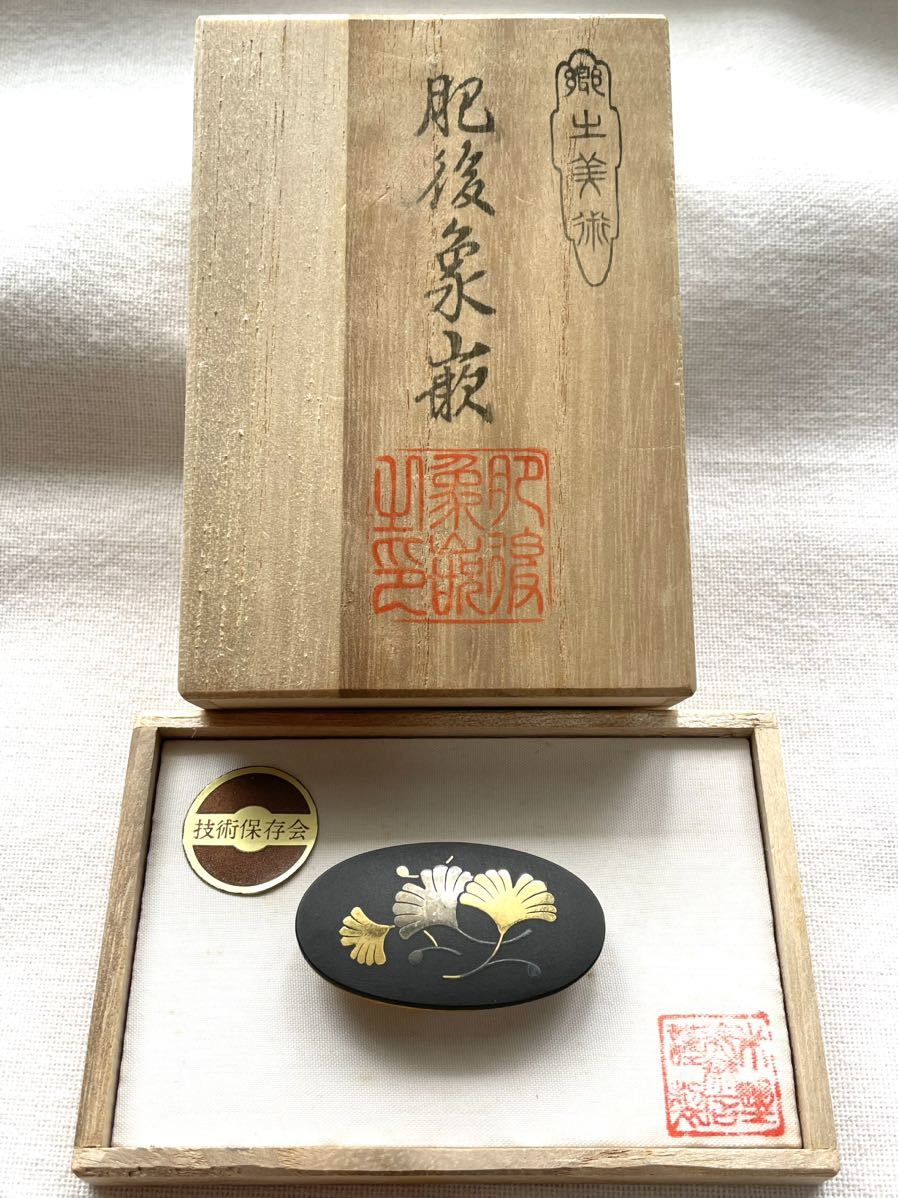 郷土美術
肥後象嵌
肥後
象嵌
之印
技術保存会